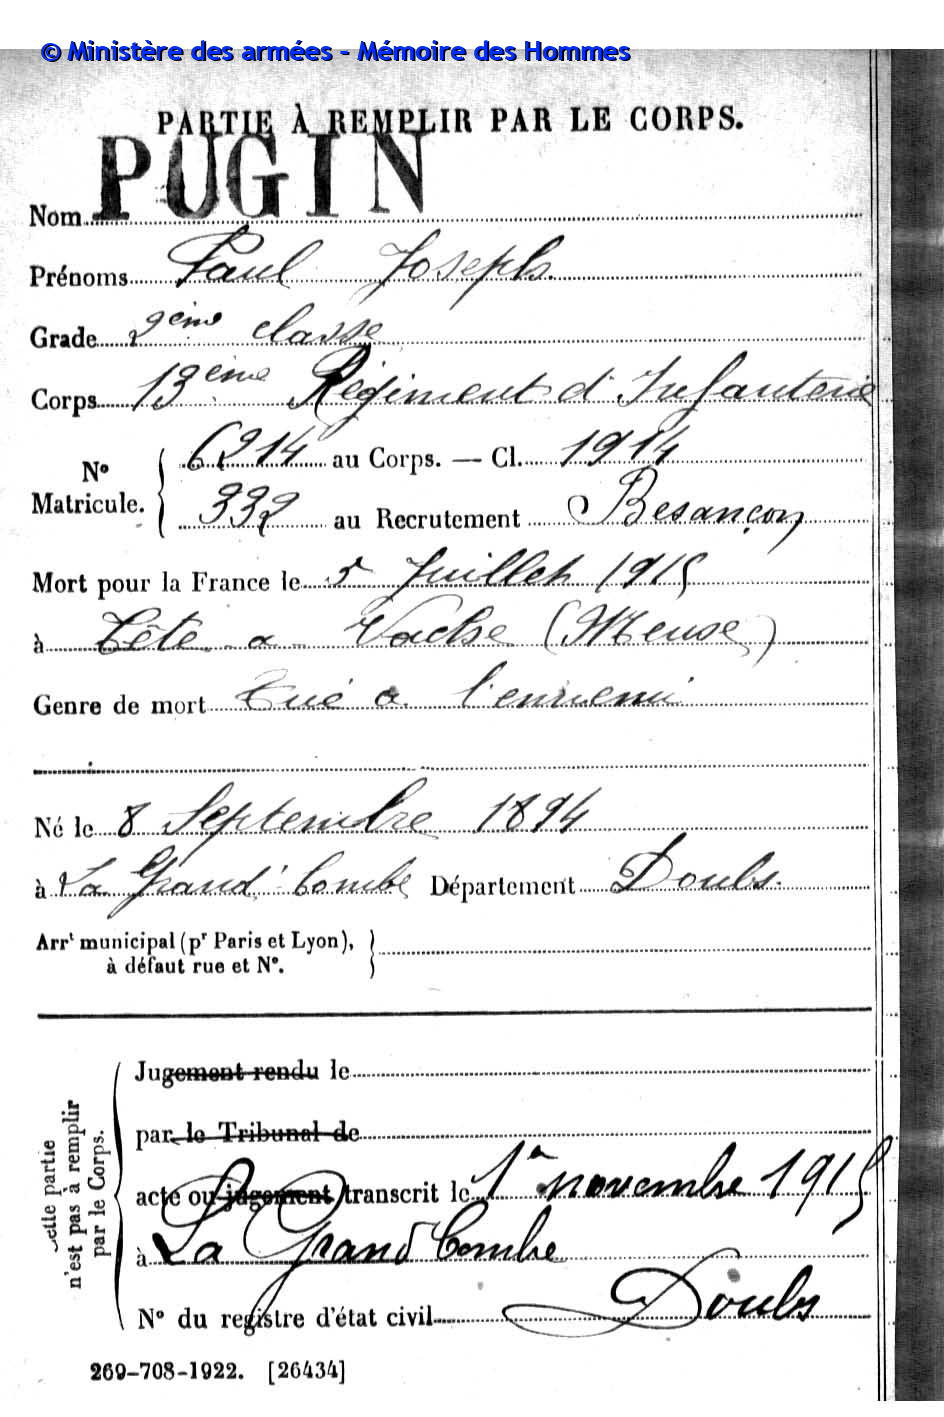 © Ministère des armées - Mémoire des Hommes
PARTIE À REMPLIR PAR LE CORPS.
Nom PUGIN
Prénoms Paul Joseph
Grade 2ème classe
Corps 13ème Régiment d'Infanterie
N° Matricule. { 6214 au Corps. — Cl. 1914
332 au Recrutement Besançon
Mort pour la France le 5 Juillet 1915
à Tête à Vache (Meuse)
Genre de mort Tué à l'ennemi
Né le 8 Septembre 1894
à La Grand'Combe Département Doubs.
Arrt municipal (pr Paris et Lyon),
à défaut rue et N°.
Cette partie
n'est pas à remplir
par le Corps.
Jugement rendu le
par le Tribunal de
acte ou jugement transcrit le 1er novembre 1915
à La Grand Combe
Doubs
N° du registre d'état civil
269-708-1922. [26434]